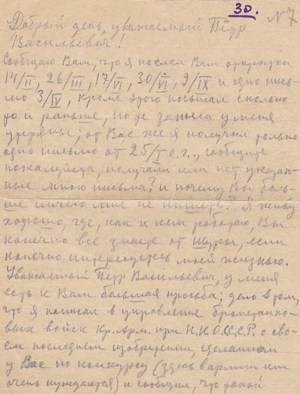 30.
№ 7
Добрый день, уважаемый Петр
Васильевич!
Сообщаю Вам, что я послал Вам открытки
14/II, 26/III, 17/VI, 30/VI, 9/IX и одно пись-
мо 3/IV, кроме этого посылал сколько
то и раньше, но записи у меня
утеряны; от Вас же я получил только
одно письмо от 25/I с.г., сообщите
пожалуйста, получили или нет указан-
ные мною письма? и почему Вы боль-
ше ничего мне не пишете? Я живу
хорошо, где, как и кем работаю, Вы
конечно все знаете от Шуры, если
конечно интересуетесь моей жизнью.
Уважаемый Петр Васильевич, у меня
есть к Вам большая просьба; дело в том,
что я написал в управление бронетанко-
вых войск Кр. Арм. при Н.К.О.СССР. о сво-
ем последнем изобретении, сделанном
у Вас по конкурсу (здесь в армии им
очень нуждаются) и сообщил, что какой